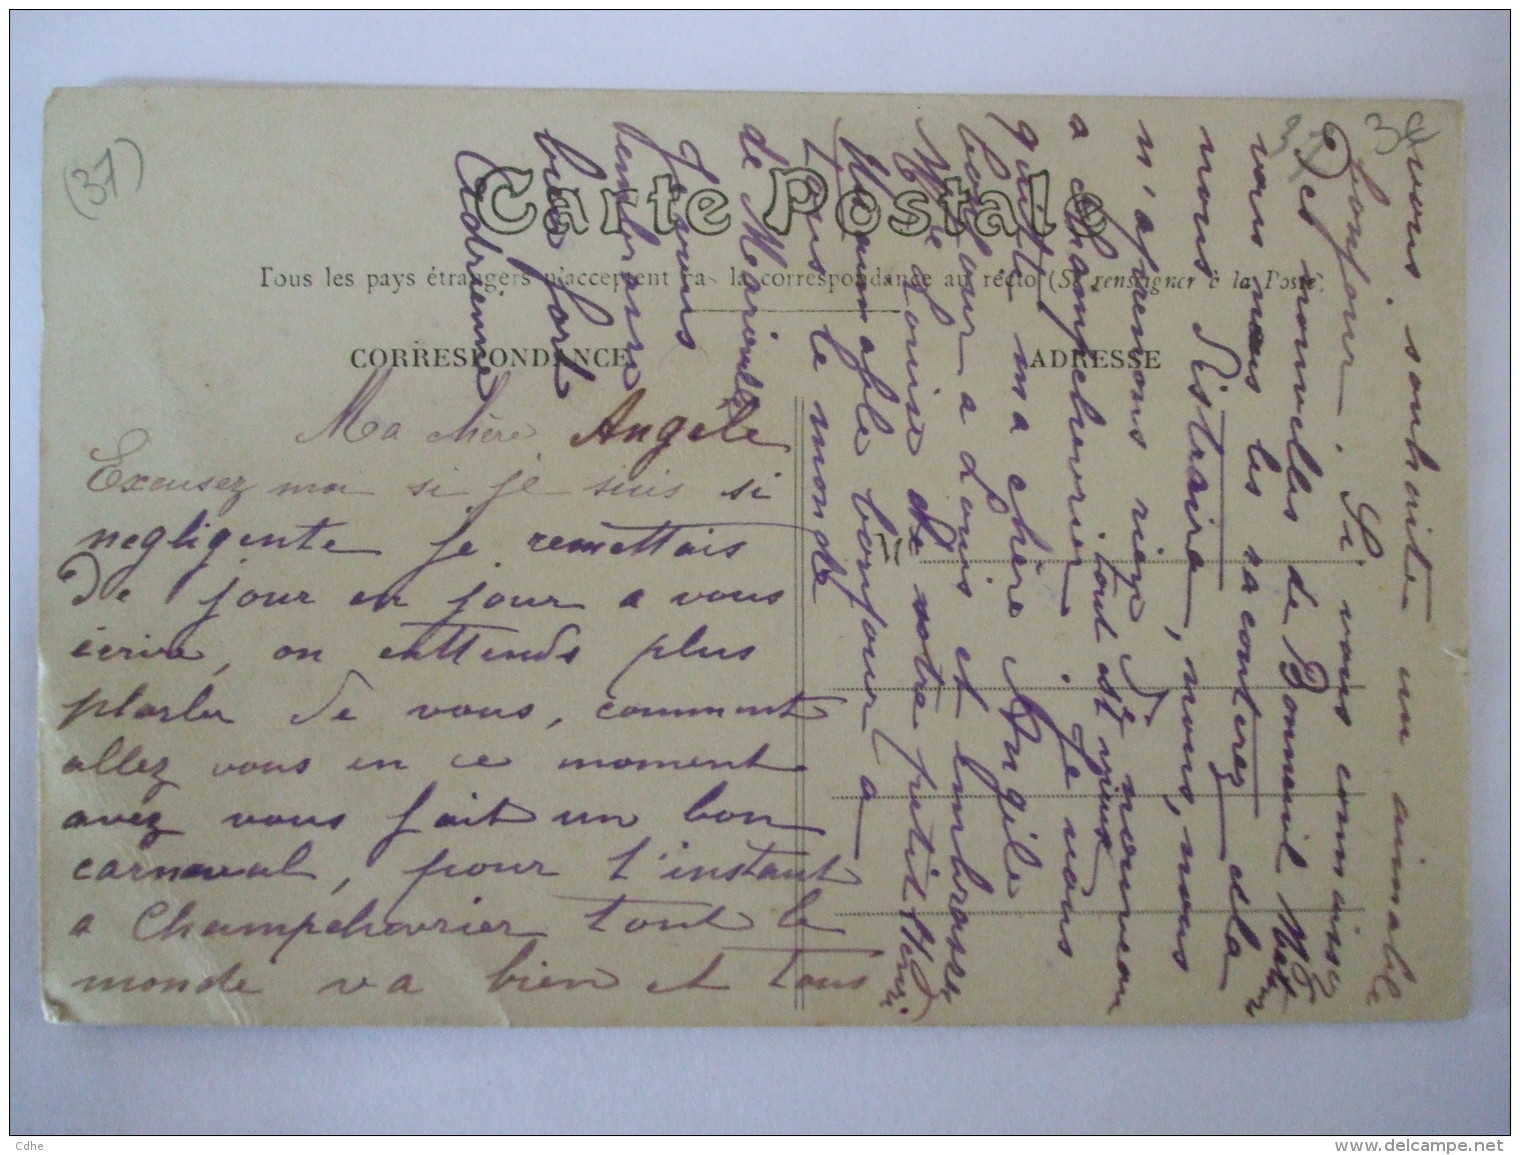 (37)
37
Carte Postale
Tous les pays étrangers n'acceptent pas la correspondance au recto (Se renseigner à la Poste)
CORRESPONDANCE
ADRESSE
Ma chère Angéle
Excusez moi si je suis si
negligente je remettais
de jour en jour a vous
écrire, on entends plus
parler de vous, comment
allez vous en ce moment
avez vous fait un bon
carnaval, pour l'instant
a Champchevrier tout le
monde va bien et tous
vous souhaite un aimable
bonjour. Si vous connaissez
des nouvelles de Bonneuil
vous nous les raconterez, cela
nous distraira, nous, nous
n'apprenons rien de nouveau
a Champchevrier, tout est vieux
. Je vous
quitte ma chère Angéle
bonjour a Louis et embrasse
Mme Louise de votre petit Henri
Un aimable bonjour a
tous le monde
de
Je vous
embrasse
bien fort
Adrienne
Cdhe
www.delcampe.net